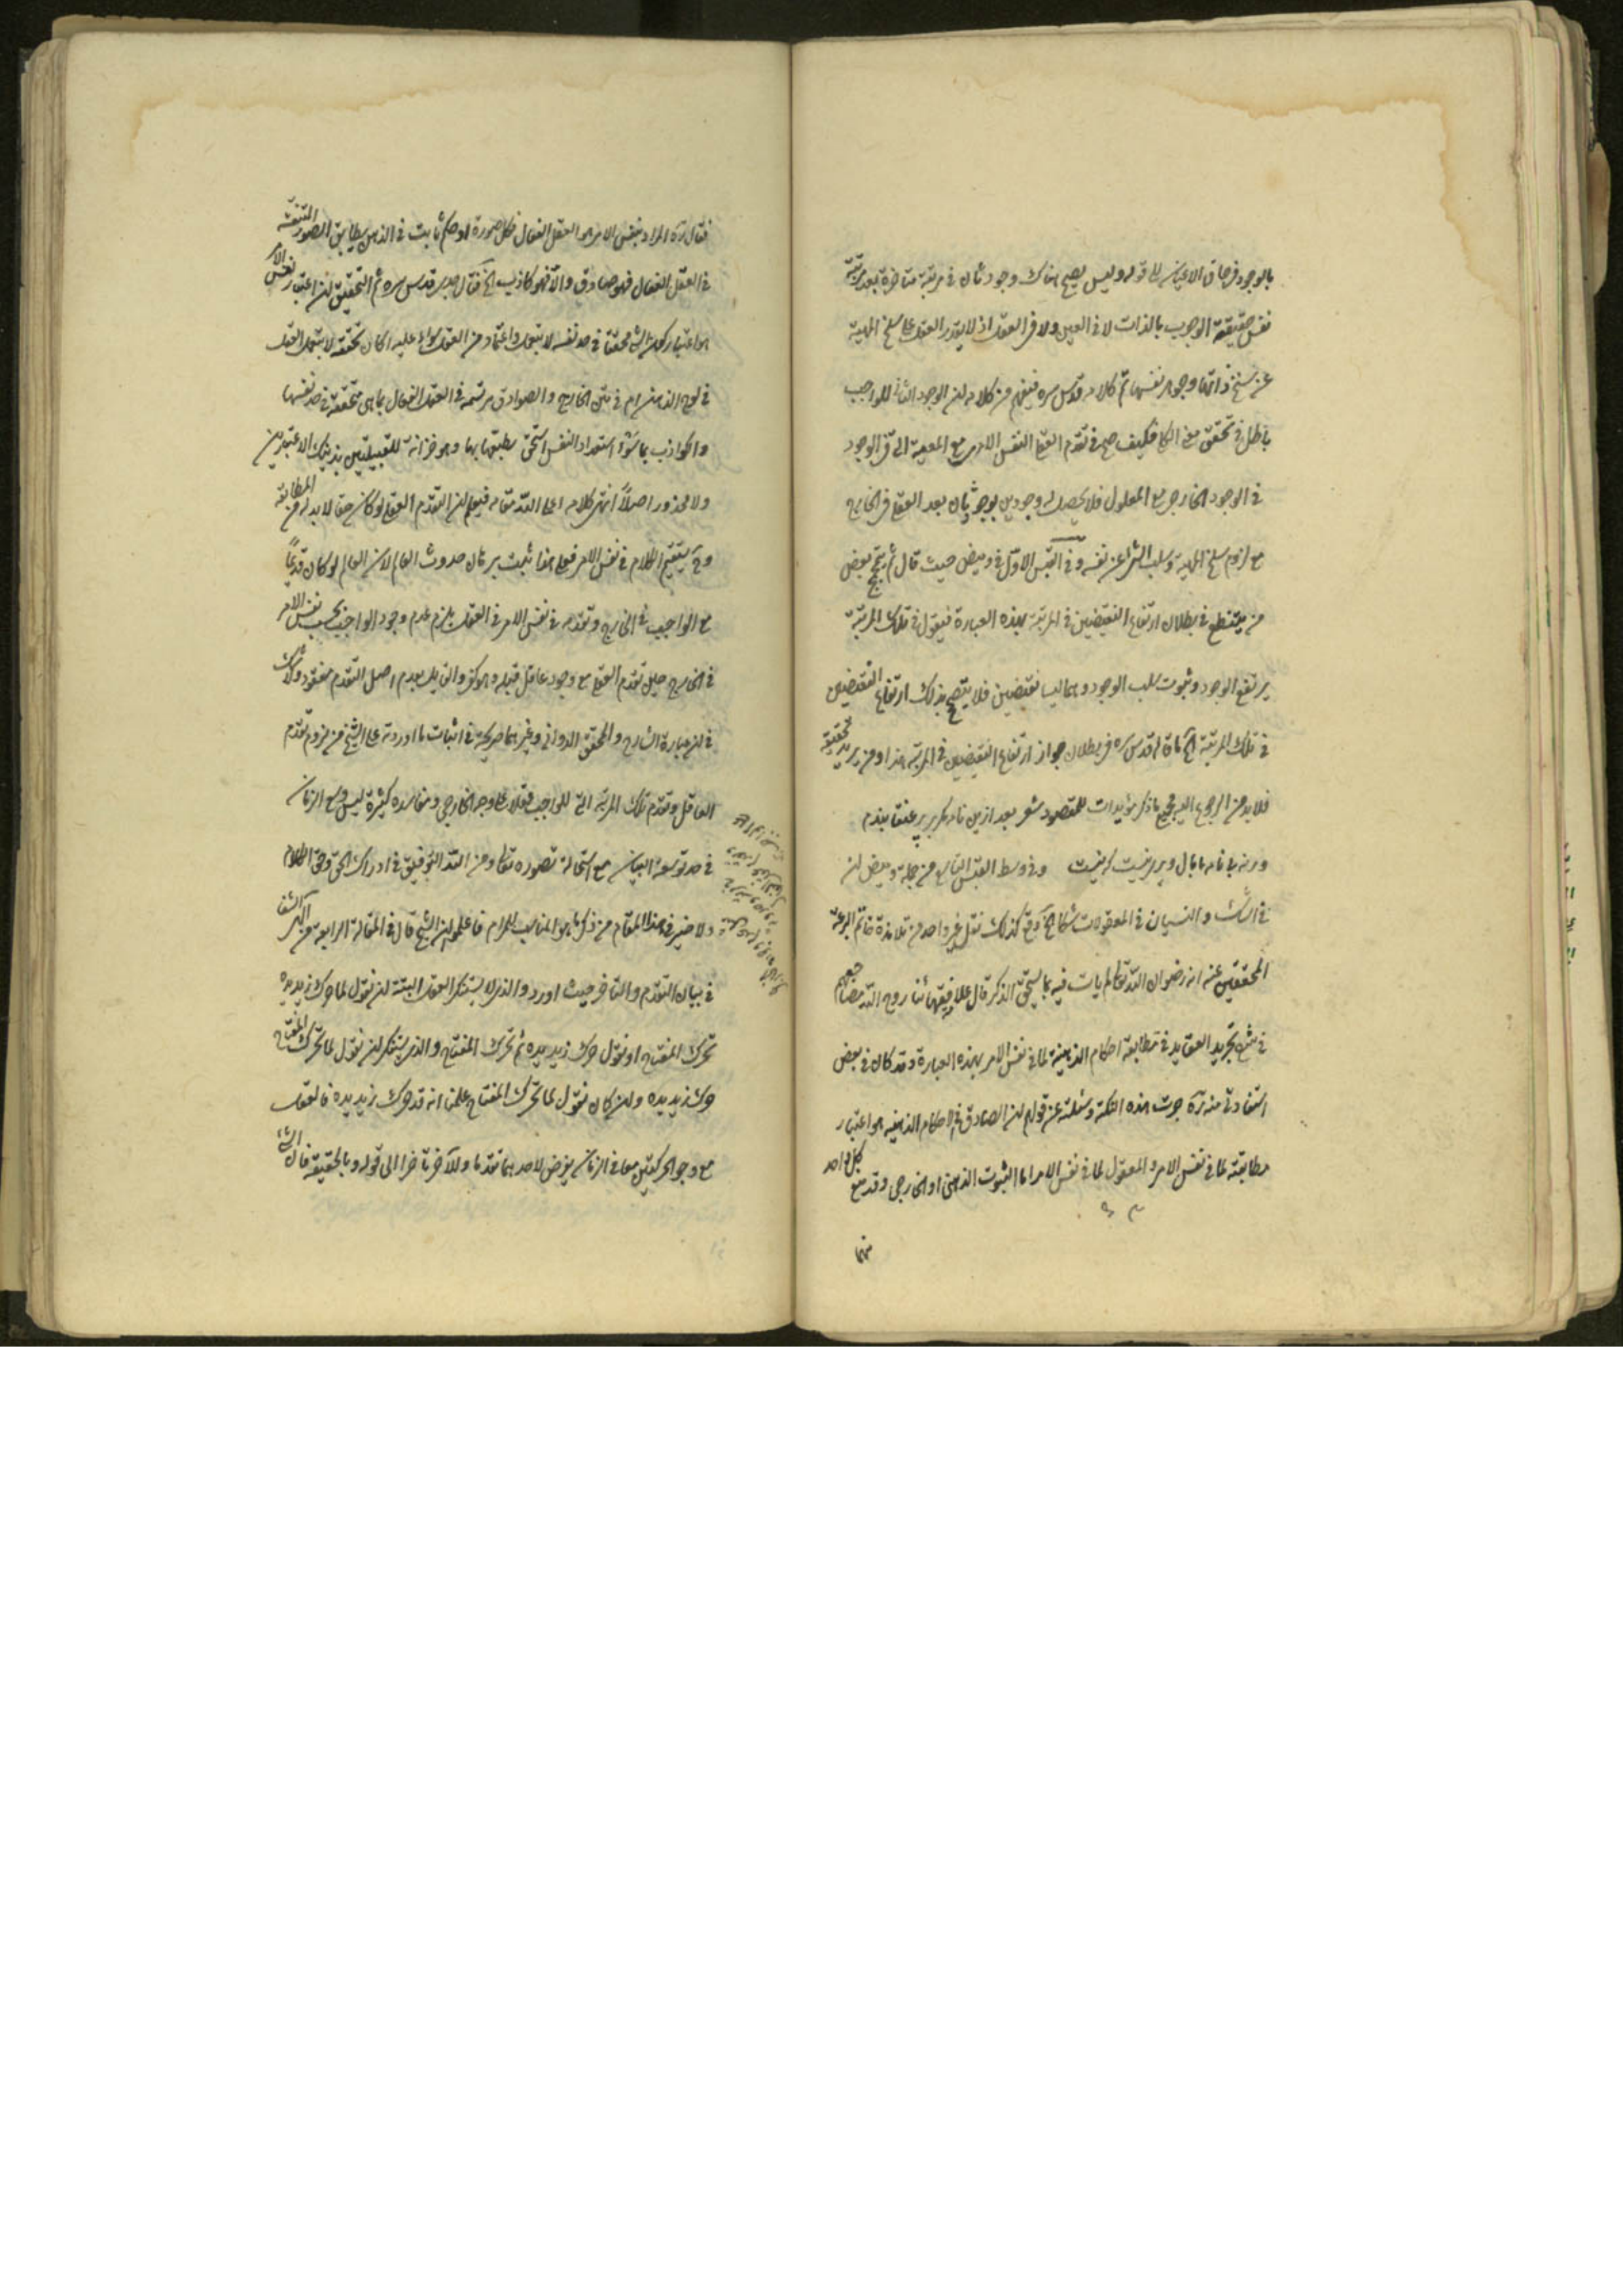 بالوجود في حاق الاعيان الى قوله وليس يصح هناك وجود ثان في مرتبة متاخرة بعد مرتبة
نفس حقيقة الوجوب بالذات لا في العين ولا في العقل اذ لا يقدر العقل على سلخ المهية
عن سنخ ذاتها وجوهر نفسها تم كلامه قدس سره فيفهم من كلامه ان الوجود الثاني للواجب
باطل في تحقق فكيف صح في تقدم العقلي النفس الامري مع المعية التي في الوجود
في الوجود الخارجي مع المعلول فلا يحصل له وجودين بوجود ثان بعد العقلي في الخارج
مع لزوم سلخ المهية وسلب الشئ عن نفسه وفي القبس الاول في وميض حيث قال ثم بعض
من في بطلان ارتفاع النقيضين في المرتبة بهذه العبارة فيقول في تلك المرتبة
يرتفع الوجود وثبوت سلب الوجود وهما ليسا نقيضين فلا يتصحح بذلك ارتفاع النقيضين
في تلك المرتبة الخ ما قاله قدس سره في بطلان جواز ارتفاع النقيضين في المرتبة هذا ومن يريد تحقيقه
فلا بد من الرجوع اليه فجميع ما ذكر مؤيدات للمقصود شعر بعد ازين نامه كر بر پر عنقا بندم
ورنه با نامه ما بال وپرى نيست كه نيست وفي وسط القبس التاسع من جملة وميض ان
في الشك والنسيان في المعقولات شكا الخ وقع كذلك نقل غير واحد من تلامذة خاتم البرعة
المحققين عنه انه رضوان الله تعالى لم يات فيه بما يستحق الذكر قال علامة فقهائنا روح الله مضاجعهم
في شرح تجريد العقايد في مطابقة احكام الذهنية لما في نفس الامر بهذه العبارة وقد كان في بعض
استفادتي منه ره جرت هذه النكتة وسئلته عن قولهم ان الصادق في الاحكام الذهنية هو اعتبار
مطابقته لما في نفس الامر والمعقول لما في نفس الامر اما الثبوت الذهني او الخارجي وقد منع كل واحد
منهما
فقال ره المراد بنفس الامر هو العقل الفعال فكل صورة او حكم ثابت في الذهن يطابق الصور المنتقشة
في العقل الفعال فهو صادق والا فهو كاذب الخ فقال جدى قدس سره ثم التحقيق ان اعتبار نفس الامر
هو اعتبار كون الشئ محققا في حد نفسه لا بتعمل واعتماد من العقل سواء عليه اكان تحققه لا بتعمل العقل
في لوح الذهن ام في متن الخارج والصوادق مرتسمة في العقل الفعال بما هى متحققة في حد نفسها
والكواذب بما سوء استعداد النفس استحق بطبعها بها وهو خزانة للقبيلتين بذينك الاعتبارين
ولا محذور اصلاً انتهى كلامه اعلى الله مقامه فيعلم ان التقدم العقلي لو كان حقا لا بد له من المطابقة
وح يستقيم الكلام في نفس الامر فعلى هذا ثبت برهان حدوث العالم لان العالم لو كان قديماً
مع الواجب في الخارج وتقدمه في نفس الامر في العقل يلزم عدم وجود الواجب بحسب نفس الامر
في الخارج حين تقدم العقلي مع وجود عاقل قبله وهو كفر والقايل بعدم اصل التقدم مفقود ولا شك
في ان عبارة الشارح والمحقق الدواني وغيرهما صريحة في اثبات ما اورده على الشيخ من لزوم تقدم
العاقل وتقدم تلك المرتبة التي للواجب عقلا على وجه الخارجي ومفاسده كثيرة ليس وسع الزمان
في حد توسعة البيان مع استحالة تصوره تعالى ومن الله التوفيق في ادراك الحق وفي الكلام
ولا ضير في هذا المقام من ذكر ما هو المناسب للمرام فاعلم ان الشيخ قال في المقالة الرابعة من آلهى الشفا
في بيان التقدم والتاخر حيث اورد والذى لا يستنكر العقل البتة ان نقول لما حرك زيد يده
تحرك المفتاح او نقول حرك زيد يده ثم تحرك المفتاح والذى يستنكر ان نقول لما تحرك المفتاح
حرك زيد يده وان كان نقول لما تحرك المفتاح علمنا انه قد حرك زيد يده فالعقل
مع وجود الحركتين معا في الزمان يفرض لاحديهما تقدما وللآخر تاخرا الى قوله وبالحقيقة فان الشئ